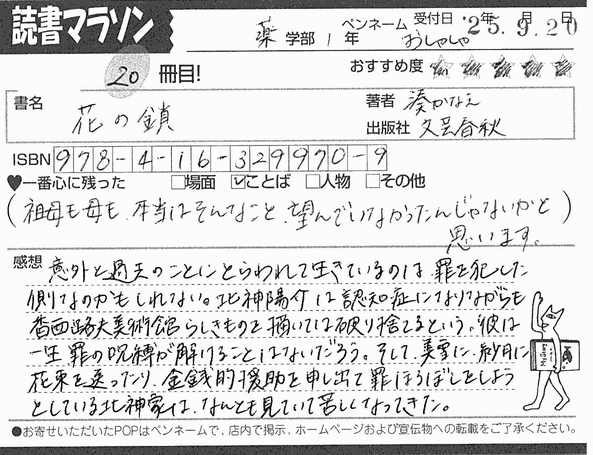 読書マラソン
薬 学部 1 年 ペンネーム おしゃしゃ 受付日 '25年 9月 20日
20 冊目! おすすめ度 ☆☆☆☆☆
書名 花の鎖 著者 湊かなえ
出版社 文芸春秋
ISBN 978-4-16-329970-9
♥一番心に残った □場面 ☑ことば □人物 □その他
(祖母も母も、本当はそんなこと、望んでいなかったんじゃないかと
思います。)
感想 意外と過去のことにとらわれて生きているのは、罪を犯した
側なのかもしれない。北神陽介は認知症になりながらも
香西路夫美術館らしきものを描いては破り捨てるという。彼は
一生罪の呪縛が解けることはないだろう。そして、美雪に、紗月に
花束を送ったり、金銭的援助を申し出て罪ほろぼしをしよう
としている北神家は、なんとも見ていて苦しくなってきた。
●お寄せいただいたPOPはペンネームで、店内で掲示、ホームページおよび宣伝物への転載をご了承ください。